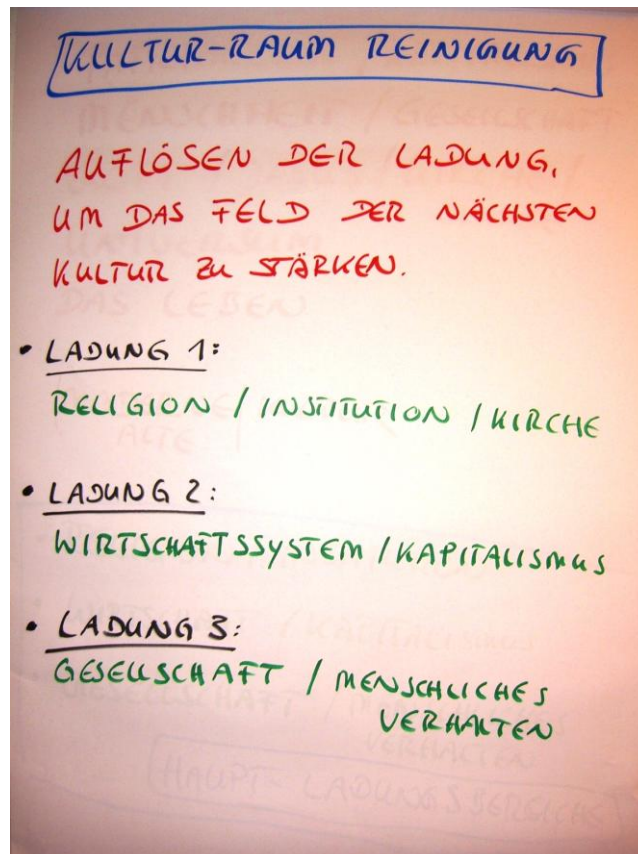 KULTUR-RAUM REINIGUNG
AUFLÖSEN DER LADUNG,
UM DAS FELD DER NÄCHSTEN
KULTUR ZU STÄRKEN.
• LADUNG 1:
RELIGION / INSTITUTION / KIRCHE
• LADUNG 2:
WIRTSCHAFTSSYSTEM / KAPITALISMUS
• LADUNG 3:
GESELLSCHAFT / MENSCHLICHES
VERHALTEN